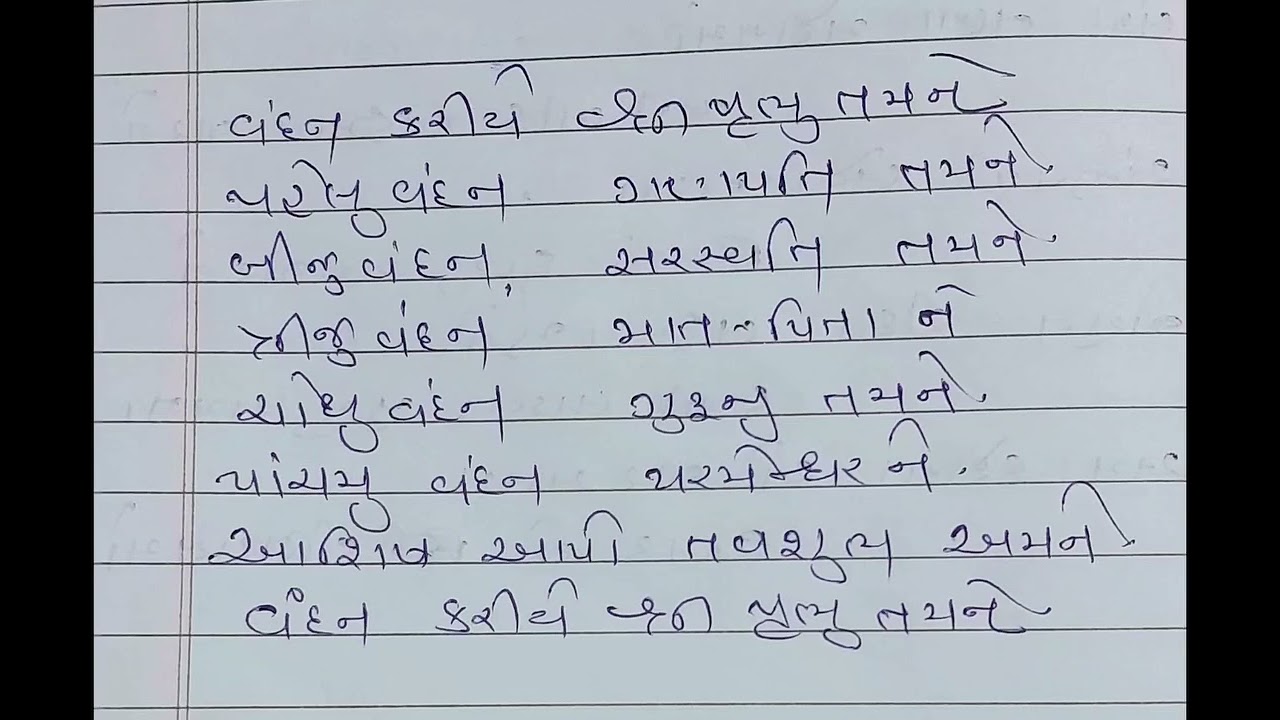 વંદન કરીયે હે પ્રભુ તમને
પહેલુ વંદન ગણપતિ તમને.
બીજુ વંદન, સરસ્વતિ તમને.
ત્રીજુ વંદન માત-પિતા ને
ચોથુ વંદન ગુરૂજી તમને.
પાંચમુ વંદન પરમેશ્વરને.
આશિષ આપો તવ શુભ અમને.
વંદન કરીયે હે પ્રભુ તમને